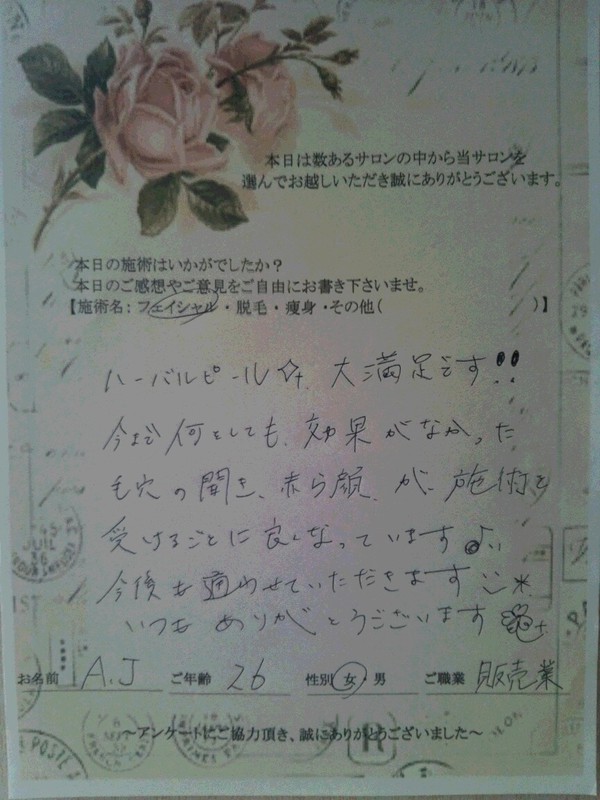 本日は数あるサロンの中から当サロンを
選んでお越しいただき誠にありがとうございます。
本日の施術はいかがでしたか？
本日のご感想やご意見をご自由にお書き下さいませ。
【施術名：フェイシャル・脱毛・痩身・その他(　　　)】
ハーバルピール☆ 大満足です!!
今まで何をしても、効果がなかった
毛穴の開き、赤ら顔、が、施術を
受けるごとに良くなっています♪
今後も通わせていただきます
いつも ありがとうございます
お名前 A.J ご年齢 26 性別 女・男 ご職業 販売業
～アンケートにご協力頂き、誠にありがとうございました～